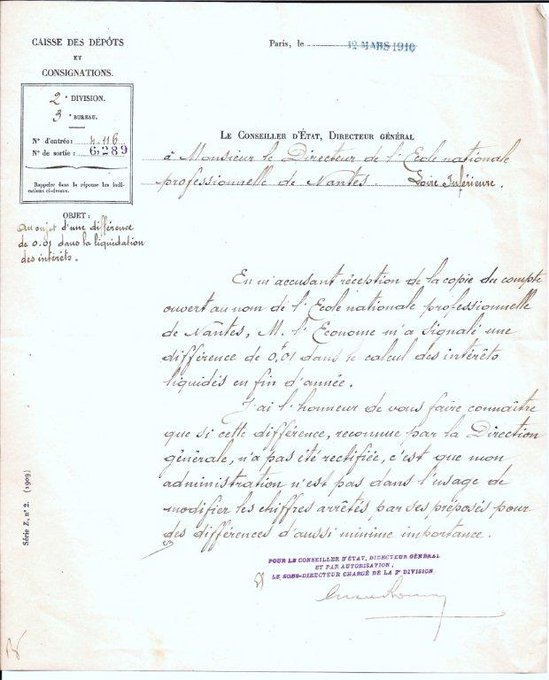 CAISSE DES DÉPÔTS
ET
CONSIGNATIONS.
2e DIVISION.
3e BUREAU.
N° d'entrée:
N° de sortie: 6,289
Rappeler dans la réponse les indi-
cations ci-dessus.
OBJET:
Au sujet d'une différence
de 0.01 dans la liquidation
des intérêts.
Paris, le 12 MARS 1910
LE CONSEILLER D'ÉTAT, DIRECTEUR GÉNÉRAL
à Monsieur le Directeur de l'Ecole nationale
professionnelle de Nantes. Loire Inférieure.
En m'accusant réception de la copie du compte
ouvert au nom de l'Ecole nationale professionnelle
de Nantes, M. l'Econome m'a signalé une
différence de 0f,01 dans le calcul des intérêts
liquidés en fin d'année.
J'ai l'honneur de vous faire connaître
que si cette différence, reconnue par la Direction
générale, n'a pas été rectifiée, c'est que mon
administration n'est pas dans l'usage de
modifier les chiffres arrêtés par ses préposés pour
des différences d'aussi minime importance.
POUR LE CONSEILLER D'ÉTAT, DIRECTEUR GÉNÉRAL
ET PAR AUTORISATION,
LE SOUS-DIRECTEUR CHARGÉ DE LA 2e DIVISION
Série E, n° 2. (1909)